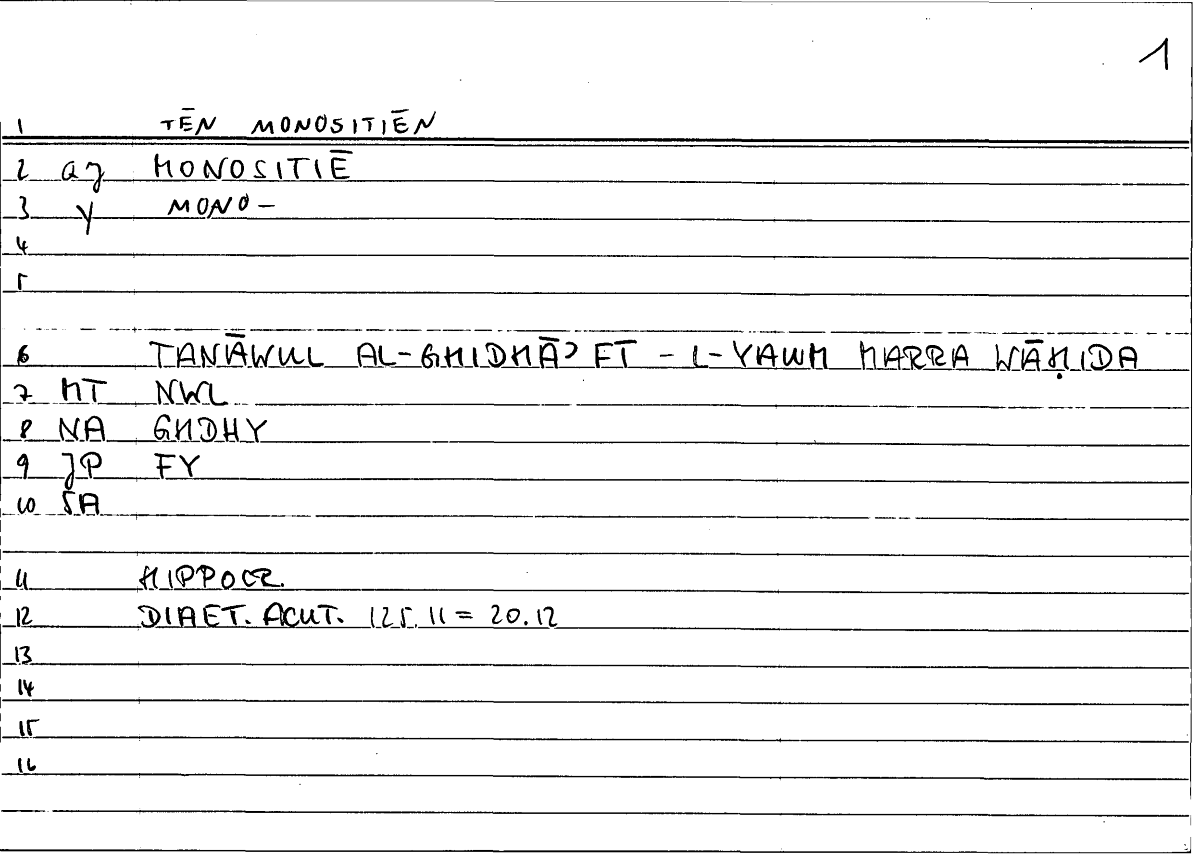 1
1 TĒN MONOSITIĒN
2 aj MONOSITIĒ
3 y MONO-
4
5
6 TANĀWUL AL-GHIDHĀʾ FĪ-L-YAWM MARRA WĀḤIDA
7 MT NWL
8 NA GHDHY
9 JP FY
10 SA
11 HIPPOCR.
12 DIAET. ACUT. 125.11 = 20.12
13
14
15
16